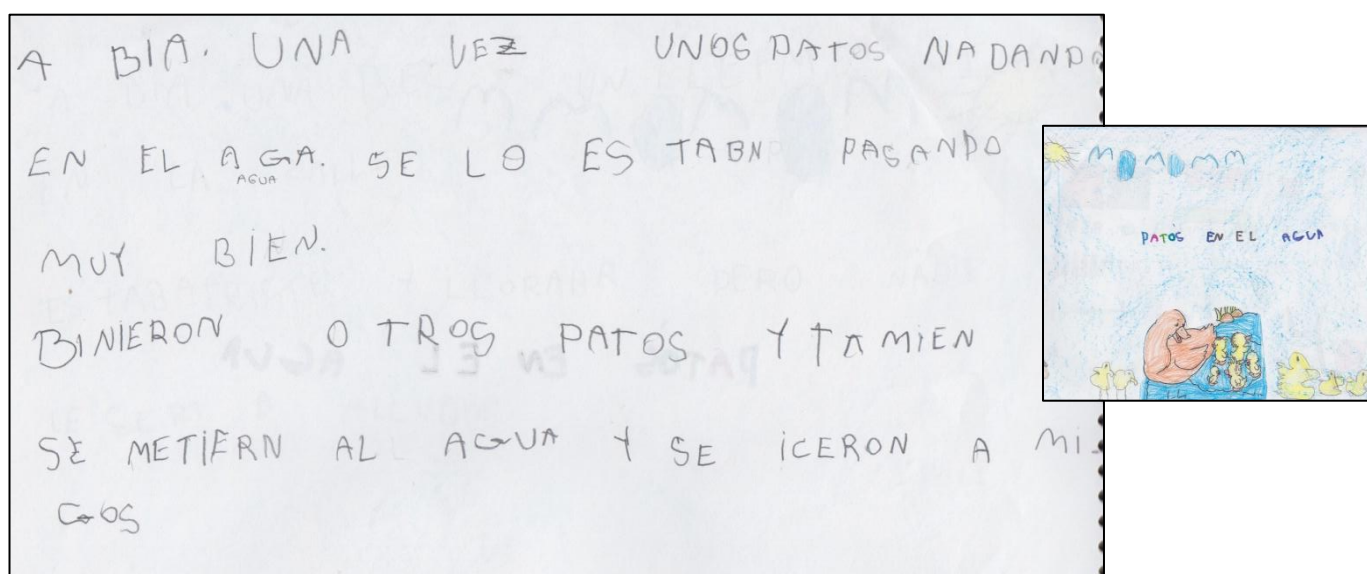 A BIA. UNA VEZ UNOS PATOS NADANDO
EN EL AGA. SE LO ES TABN PAGANDO
AGUA
MUY BIEN.
BINIERON O TROS PATOS Y TAMIEN
SE METIERN AL AGUA Y SE ICERON A MI-
GOS
PATOS EN EL AGUA